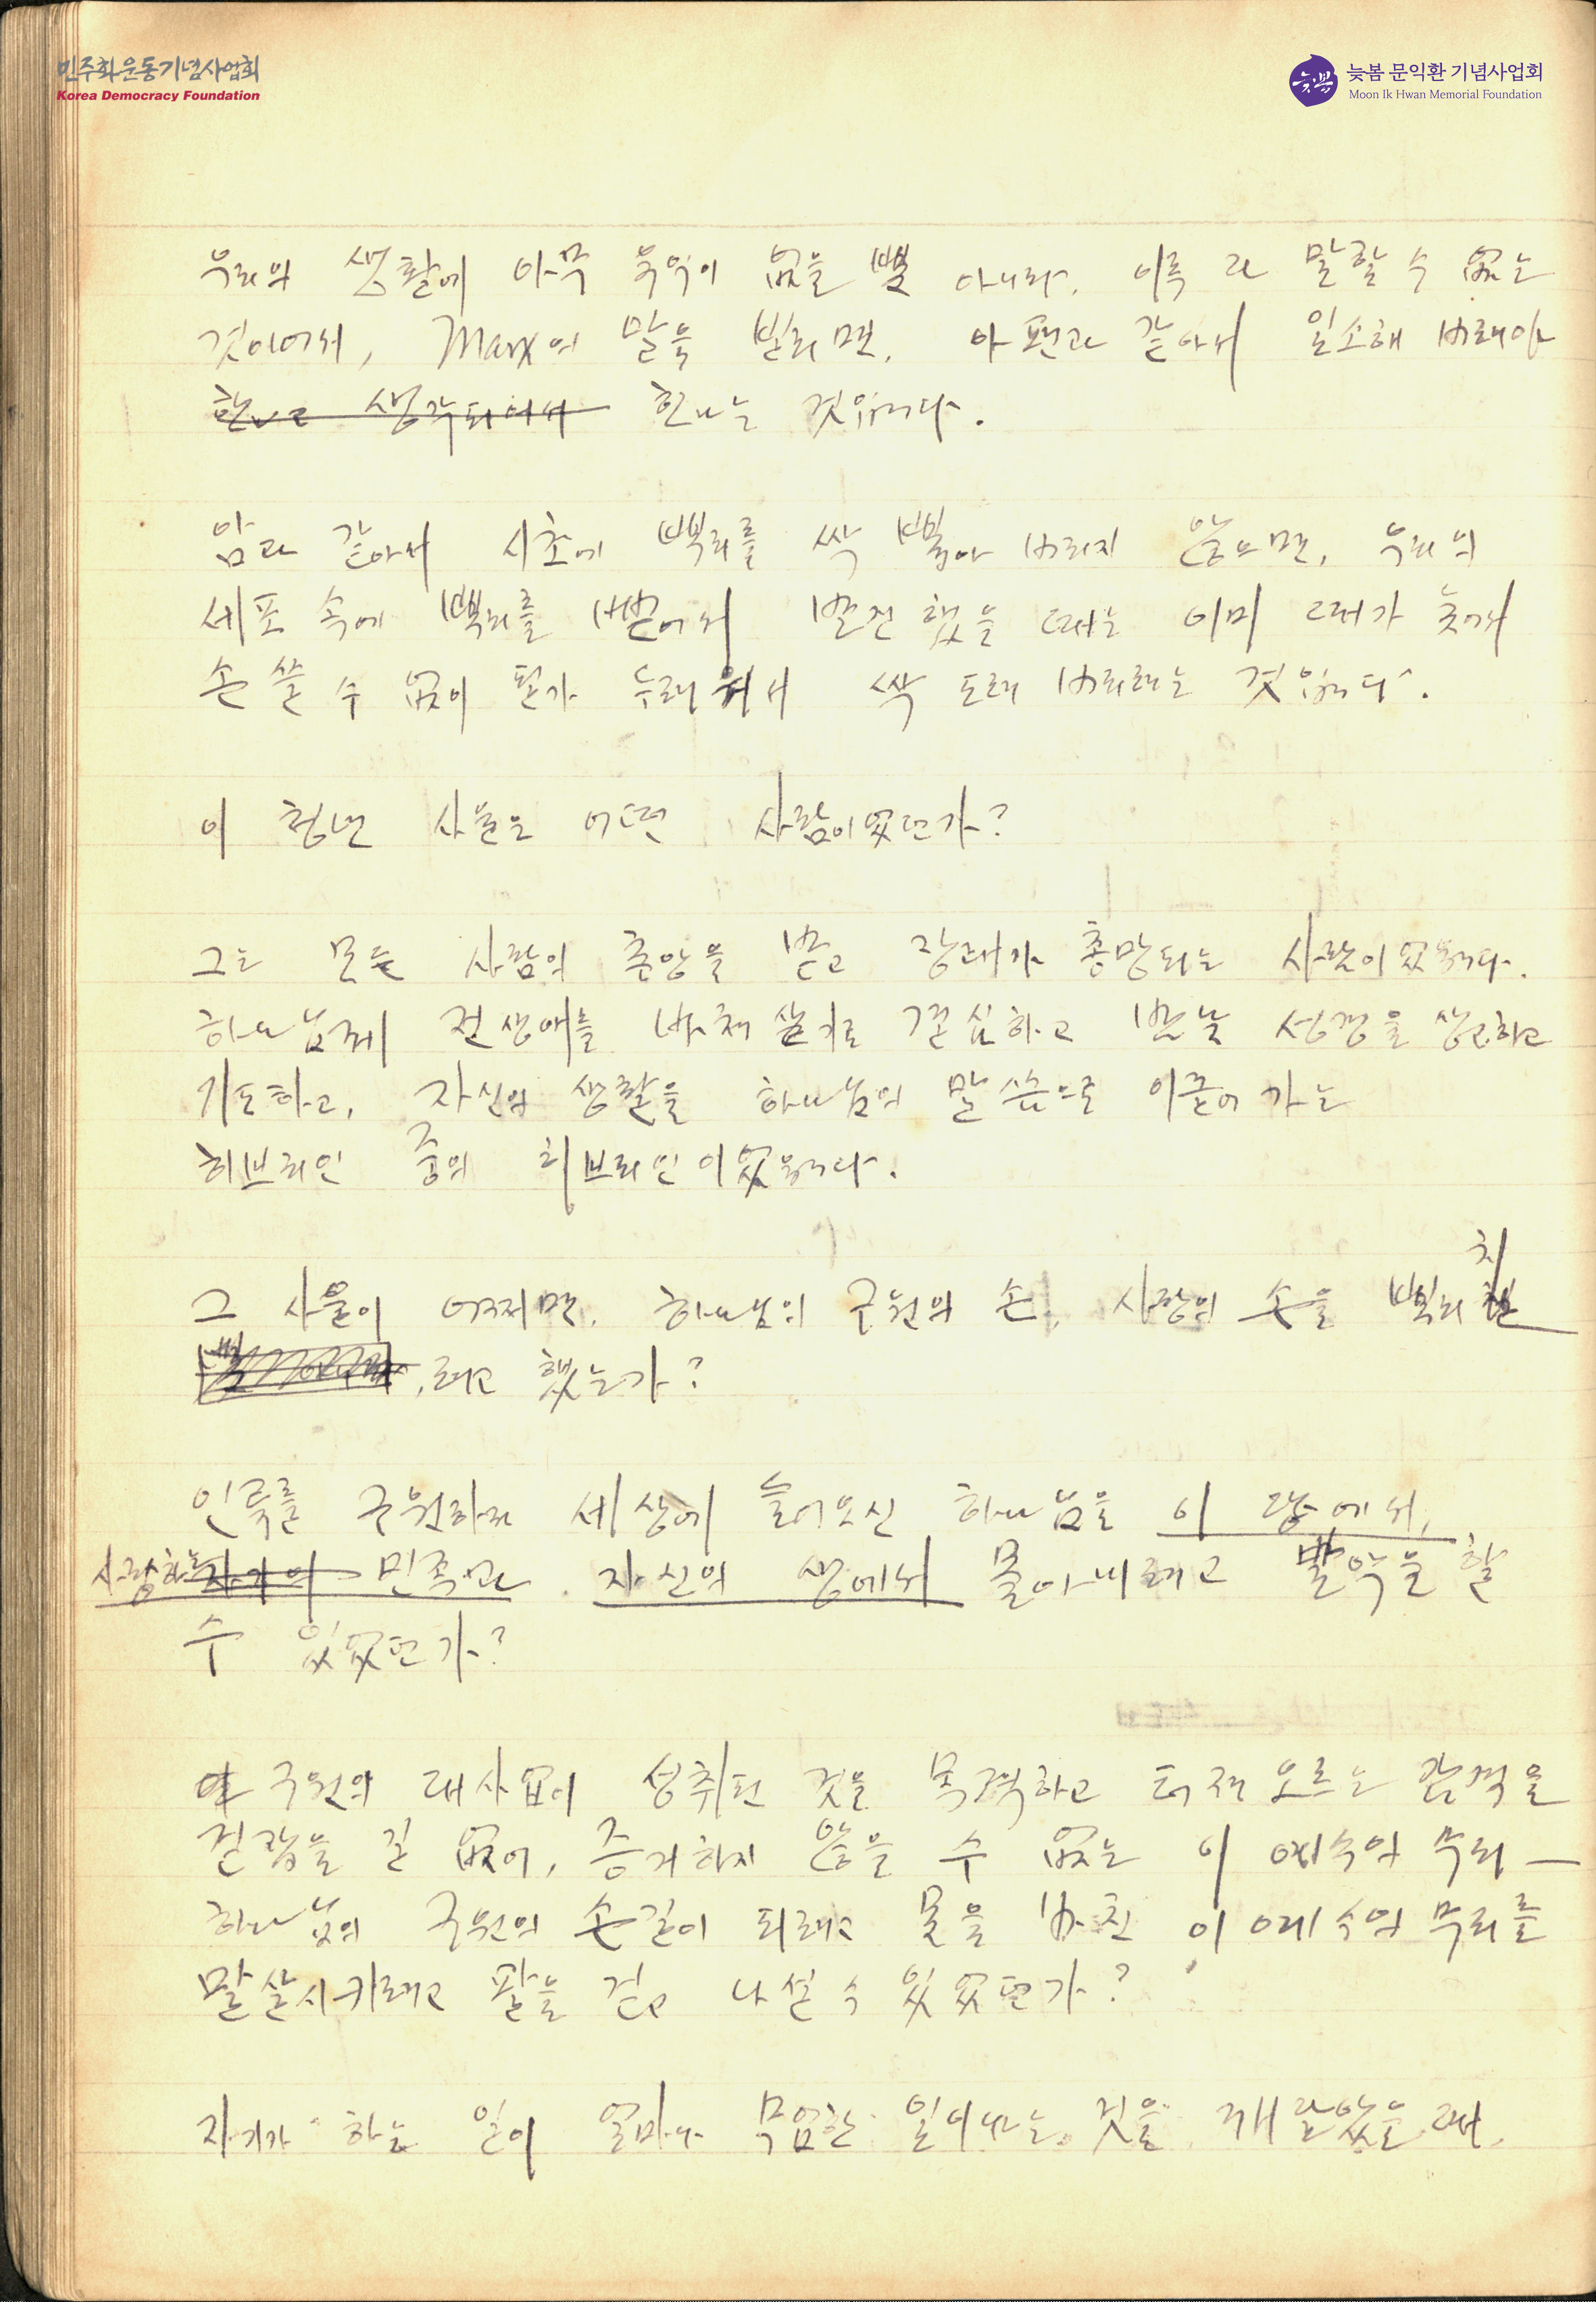 민주화운동기념사업회
Korea Democracy Foundation
늦봄 문익환 기념사업회
Moon Ik Hwan Memorial Foundation
우리의 생활에 아무 유익이 없을 뿐 아니라, 이루 다 말할 수 없는
것이어서, Marx의 말을 빌리면, 아편과 같아서 일소해 버려야
한다고 생각되어서 한다는 것입니다.
암과 같아서 시초에 뿌리를 싹 뽑아 버리지 않으면, 우리의
세포 속에 뿌리를 뻗어서 발전했을 때는 이미 때가 늦어서
손 쓸 수 없이 싹 도려 버리려는 것입니다.
이 청년 사울은 어떤 사람이었던가?
그는 모든 사람의 존앙을 받고 장래가 촉망되는 사람이었읍니다.
하나님께 전생애를 바쳐 살기로 결심하고 밤낮 성경을 상고하고
기도하고, 자신의 생활을 하나님의 말씀으로 이끌어 가는
히브리인 중의 히브리인이었읍니다.
그 사울이 어쩌면, 하나님의 구원의 손, 사랑의 손을 뿌리치
려고 했는가?
인류를 구원하러 세상에 들어오신 하나님을 이 땅에서,
사랑하는 자기의 민족과 자신의 생에서 몰아내려고 발악을 할
수 있었던가?
구원의 대사업이 성취된 것을 목격하고 터져 오르는 감격을
걷잡을 길 없어, 증거하지 않을 수 없는 이 예수의 무리 —
하나님의 구원의 손길이 되려고 몸을 바친 이 예수의 무리를
말살시키려고 팔을 걷고 나설 수 있었던가?
자기가 하는 일이 얼마나 무엄한 일이라는 것을 깨달았을 때,